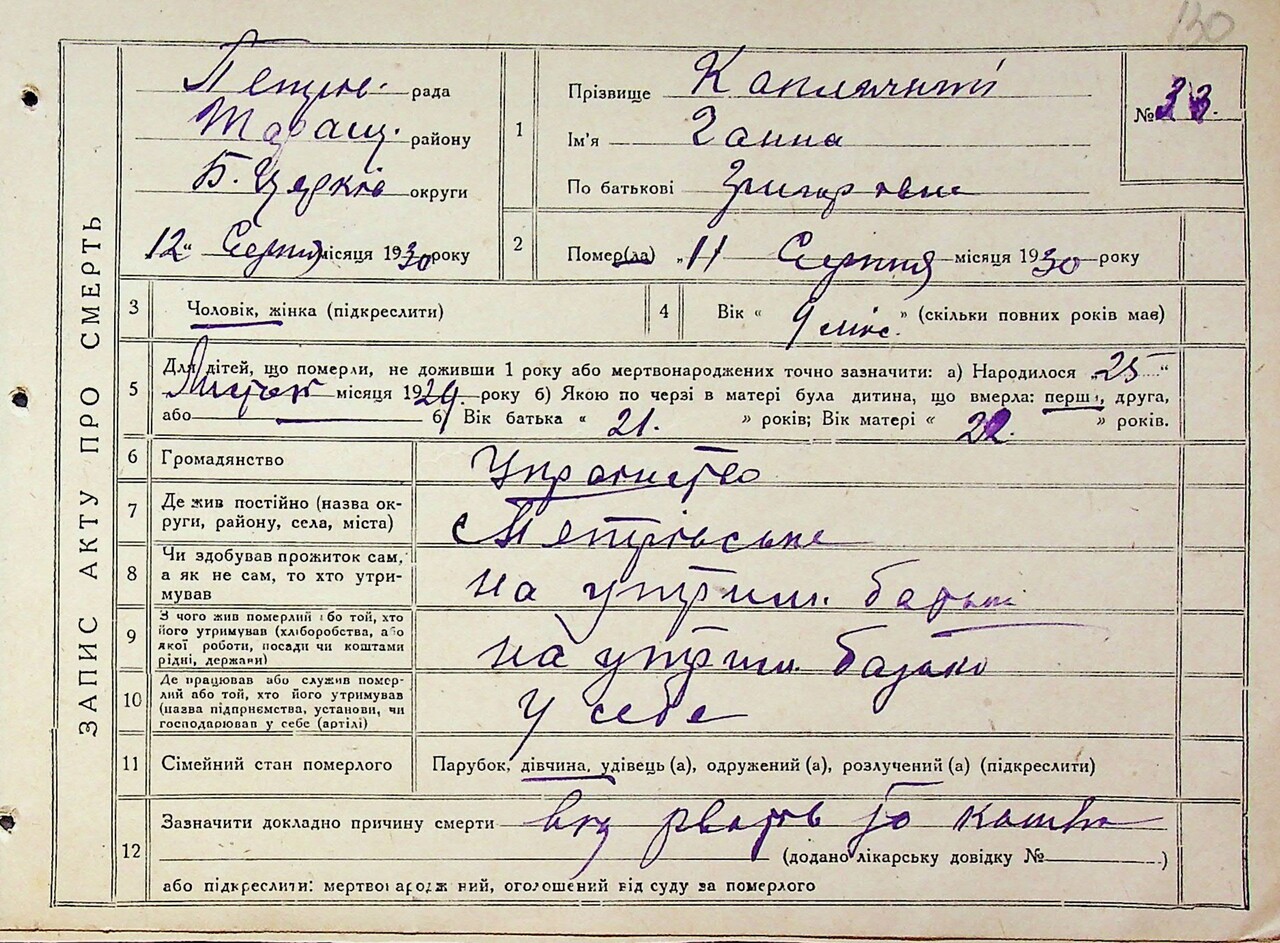 130
ЗАПИС АКТУ ПРО СМЕРТЬ
Петрів. рада
Таращ. району
Б. Церків округи
12" Серпня місяця 1930 року
1 Прізвище
Ім'я Ганна
По батькові Григорівна
№ 33.
2 Помер(ла) „11 Серпня місяця 1930 року
3 Чоловік, жінка (підкреслити)
4 Вік « 9 міс. » (скільки повних років мав)
5 Для дітей, що померли, не доживши 1 року або мертвонароджених точно зазначити: а) Народилося „25"
місяця 1929 року б) Якою по черзі в матері була дитина, що вмерла: перша, друга,
або б) Вік батька « 21. » років; Вік матері « 22. » років.
6 Громадянство
7 Де жив постійно (назва ок-
руги, району, села, міста) с Петрівське
8 Чи здобував прожиток сам,
а як не сам, то хто утри-
мував на утрим. батьки
9 З чого жив померлий або той, хто
його утримував (хліборобства, або
якої роботи, посади чи коштами
рідні, держави) на утрим. батьків
10 Де працював або служив помер-
лий або той, хто його утримував
(назва підприємства, установи, чи
господарював у себе (артілі) У себе
11 Сімейний стан померлого Парубок, дівчина, удівець (а), одружений (а), розлучений (а) (підкреслити)
12 Зазначити докладно причину смерти від
(додано лікарську довідку № )
або підкреслити: мертвонароджений, оголошений від суду за померлого